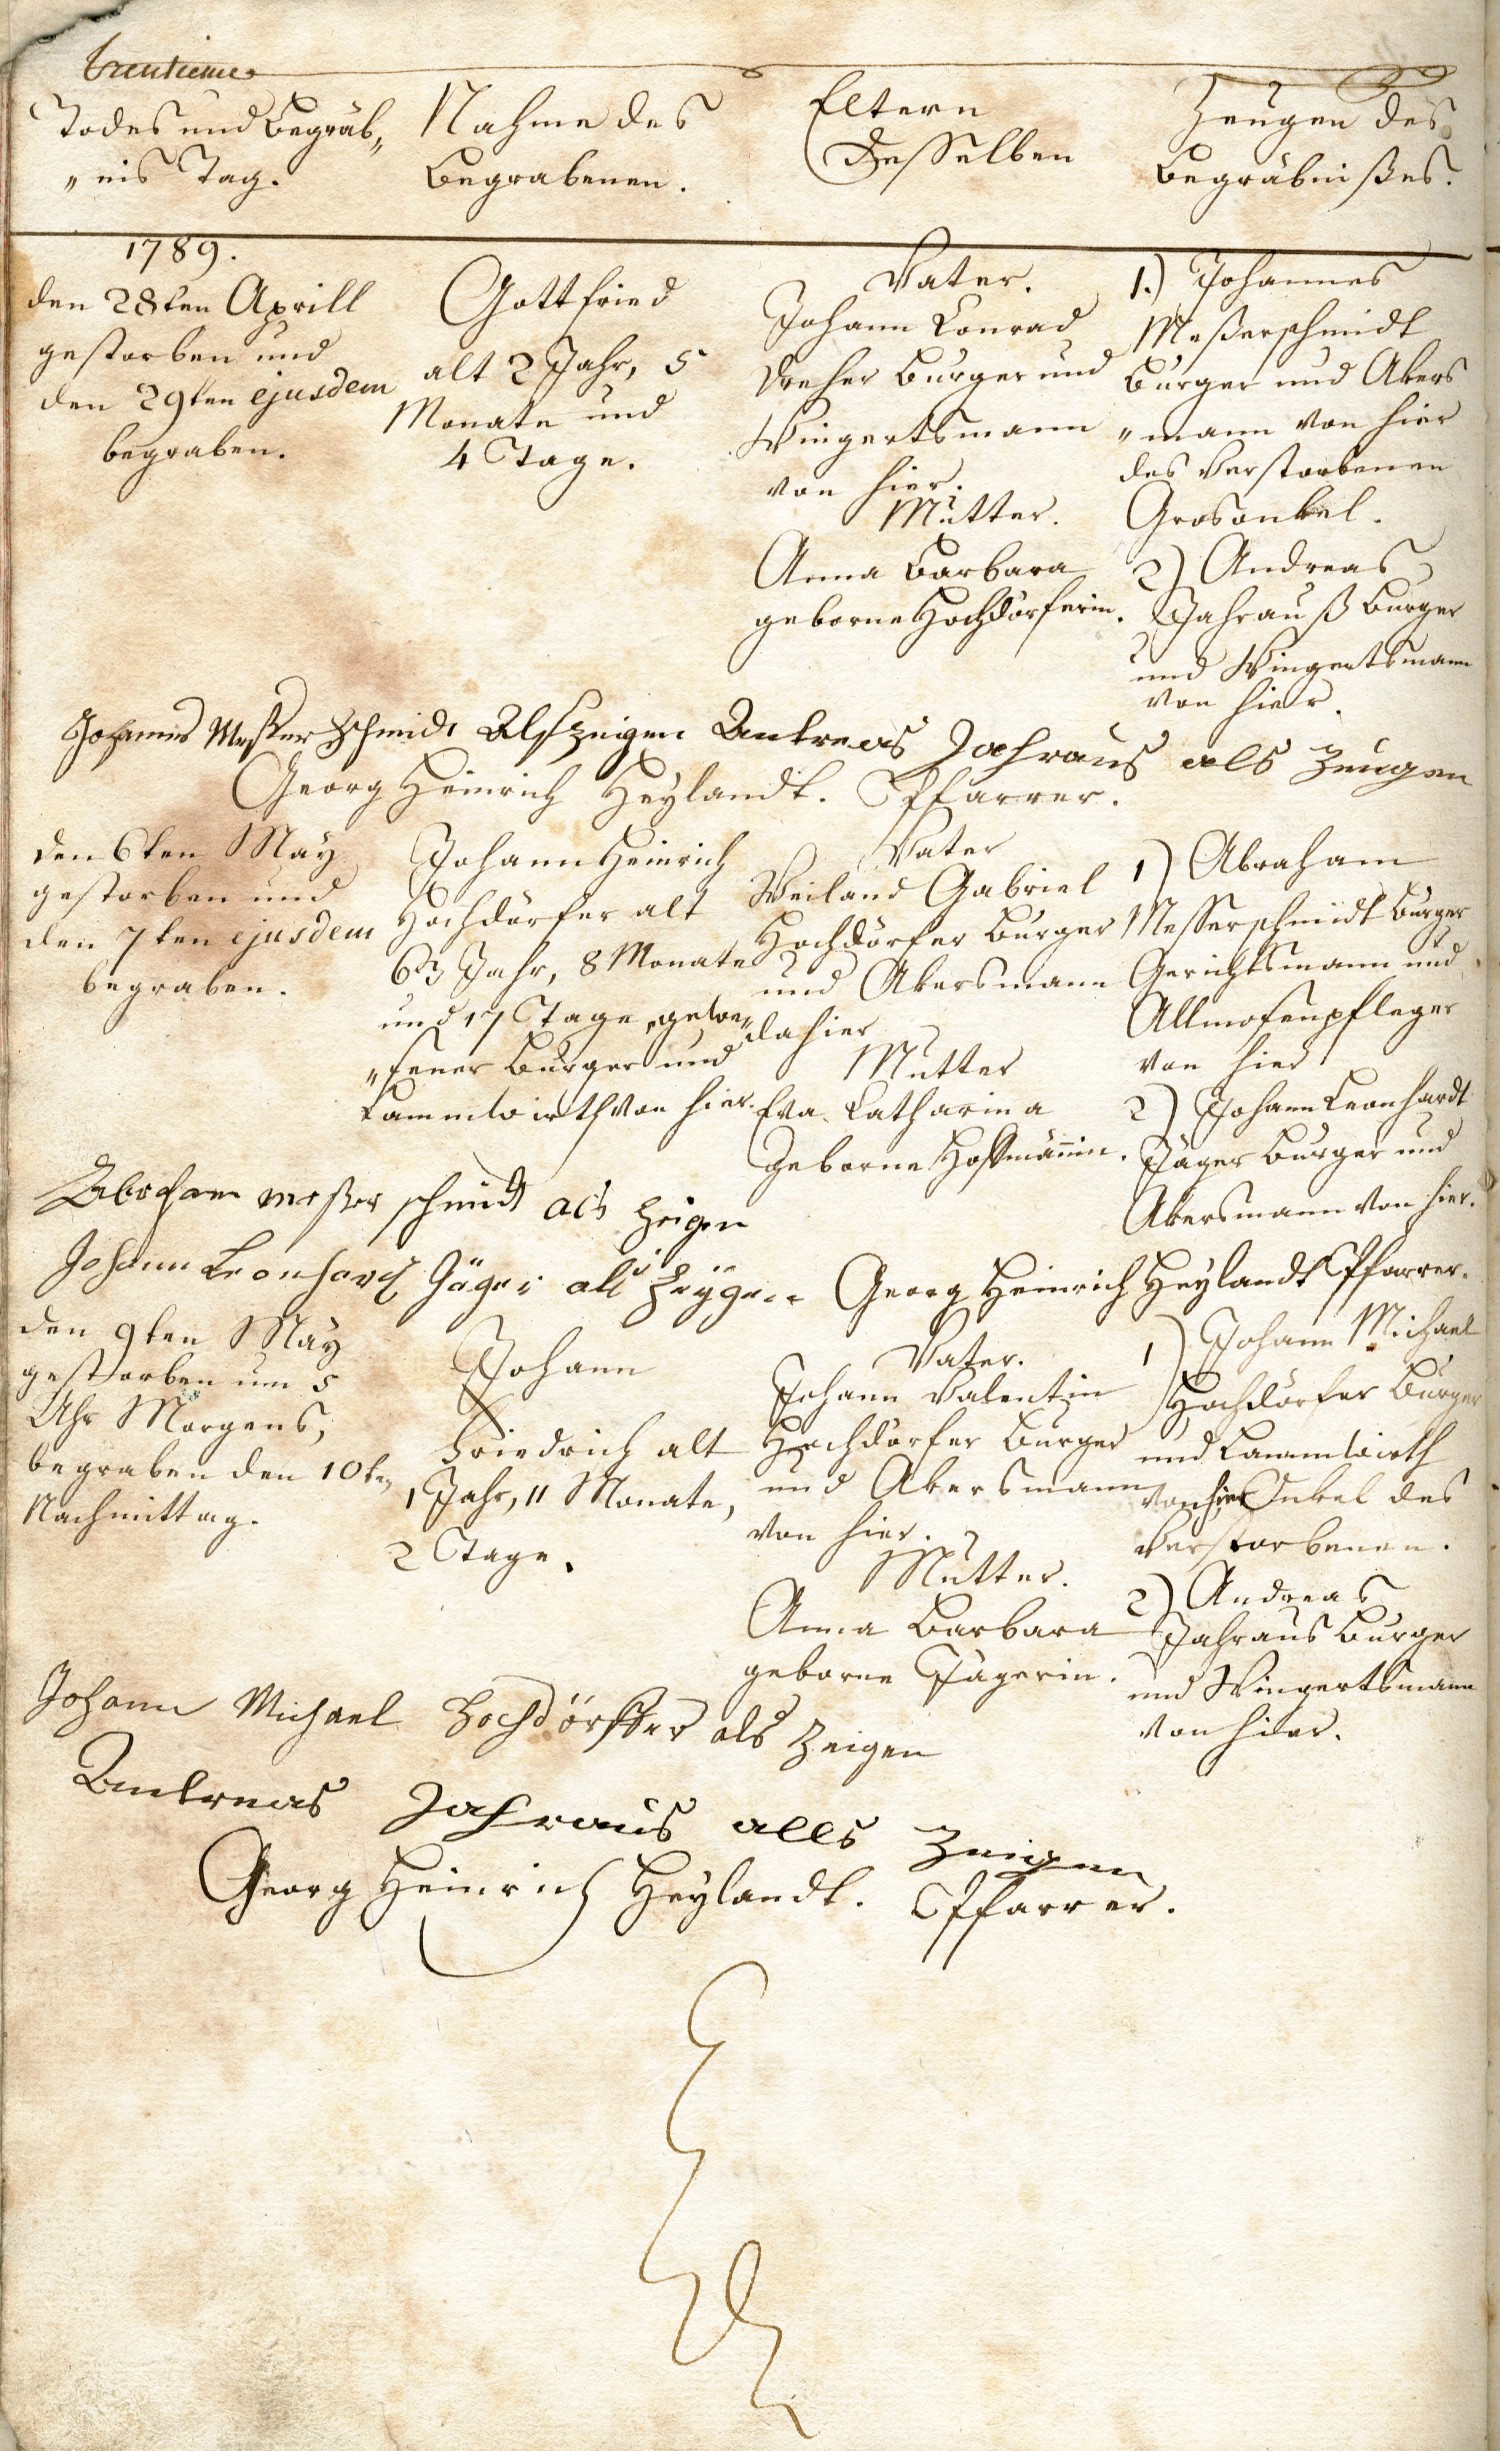 trentieme
Todes und Begräb„
„nis Tag.
Nahme des
Begrabenen.
Eltern
Desselben
Zeugen des
Begräbnißes.
1789.
den 28ten Aprill
gestorben und
den 29ten ejusdem
begraben.
Gottfried
alt 2 Jahr, 5
Monate und
4 Tage.
Vater.
Johann Conrad
Dreher Burger und
Wingertsmann
von hier.
Mutter.
Anna Barbara
geborne Hochdörferin.
1.) Johannes
Meßerschmidt
Burger und Akers
„mann von hier
des Verstorbenen
Grosonkel.
2) Andreas
Jahrauß Burger
und Wingertsmann
von hier.
Johannes Messer Schmidt Alszeigen Andreas Jahraus als Zeugen
Georg Heinrich Heylandt. Pfarrer.
den 6ten May
gestorben und
den 7ten ejusdem
begraben.
Johann Heinrich
Hochdörfer alt
63 Jahr, 8 Monate
und 17 Tage, gewe„
„sener Burger und
Lammwirth von hier.
Vater
Weiland Gabriel
Hochdörfer Burger
und Akersmann
dahier
Mutter
Eva Catharina
geborne Hoffmännin.
1) Abraham
Messerschmidt Burger
Gerichtsmann und
Allmosenpfleger
von hier
2) Johann Leonhardt
Jäger Burger und
Akersmann von hier.
Abraham meßer schmidt als zeigen
Johann Leonhard Jäger als zeygen Georg Heinrich Heylandt Pfarrer.
den 9ten May
gestorben um 5
Uhr Morgens,
begraben den 10ten
Nachmittag.
Johann
Friedrich alt
1 Jahr, 11 Monate,
2 Tage.
Vater.
Johann Valentin
Hochdörfer Burger
und Akersmann
von hier.
Mutter.
Anna Barbara
geborne Jägerin.
1) Johann Michael
Hochdörfer Burger
und Lammwirth
von hier Onkel des
Verstorbenen.
2) Andreas
Jahraus Burger
und Wingertsmann
von hier.
Johann Michael Hochdörffer als Zeigen
Andreas Jahraus alls Zeugen
Georg Heinrich Heylandt. Pfarrer.